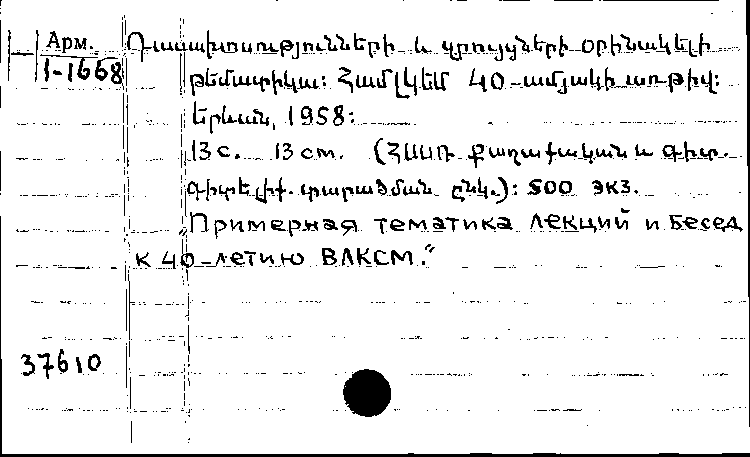 Арм. Դասախոսությունների և զրույցների օրինակելի
1-1668 թեմատիկա: Համլկեմ 40-ամյակի առթիվ:
Երևան, 1958:
13 с. 13 cm. (ՀՍՍՌ Քաղաքական և գիտ.
գիտելիք. տարածման ընկ.): 500 экз.
Примерная тематика лекций и бесед
к 40-летию ВЛКСМ."
37610